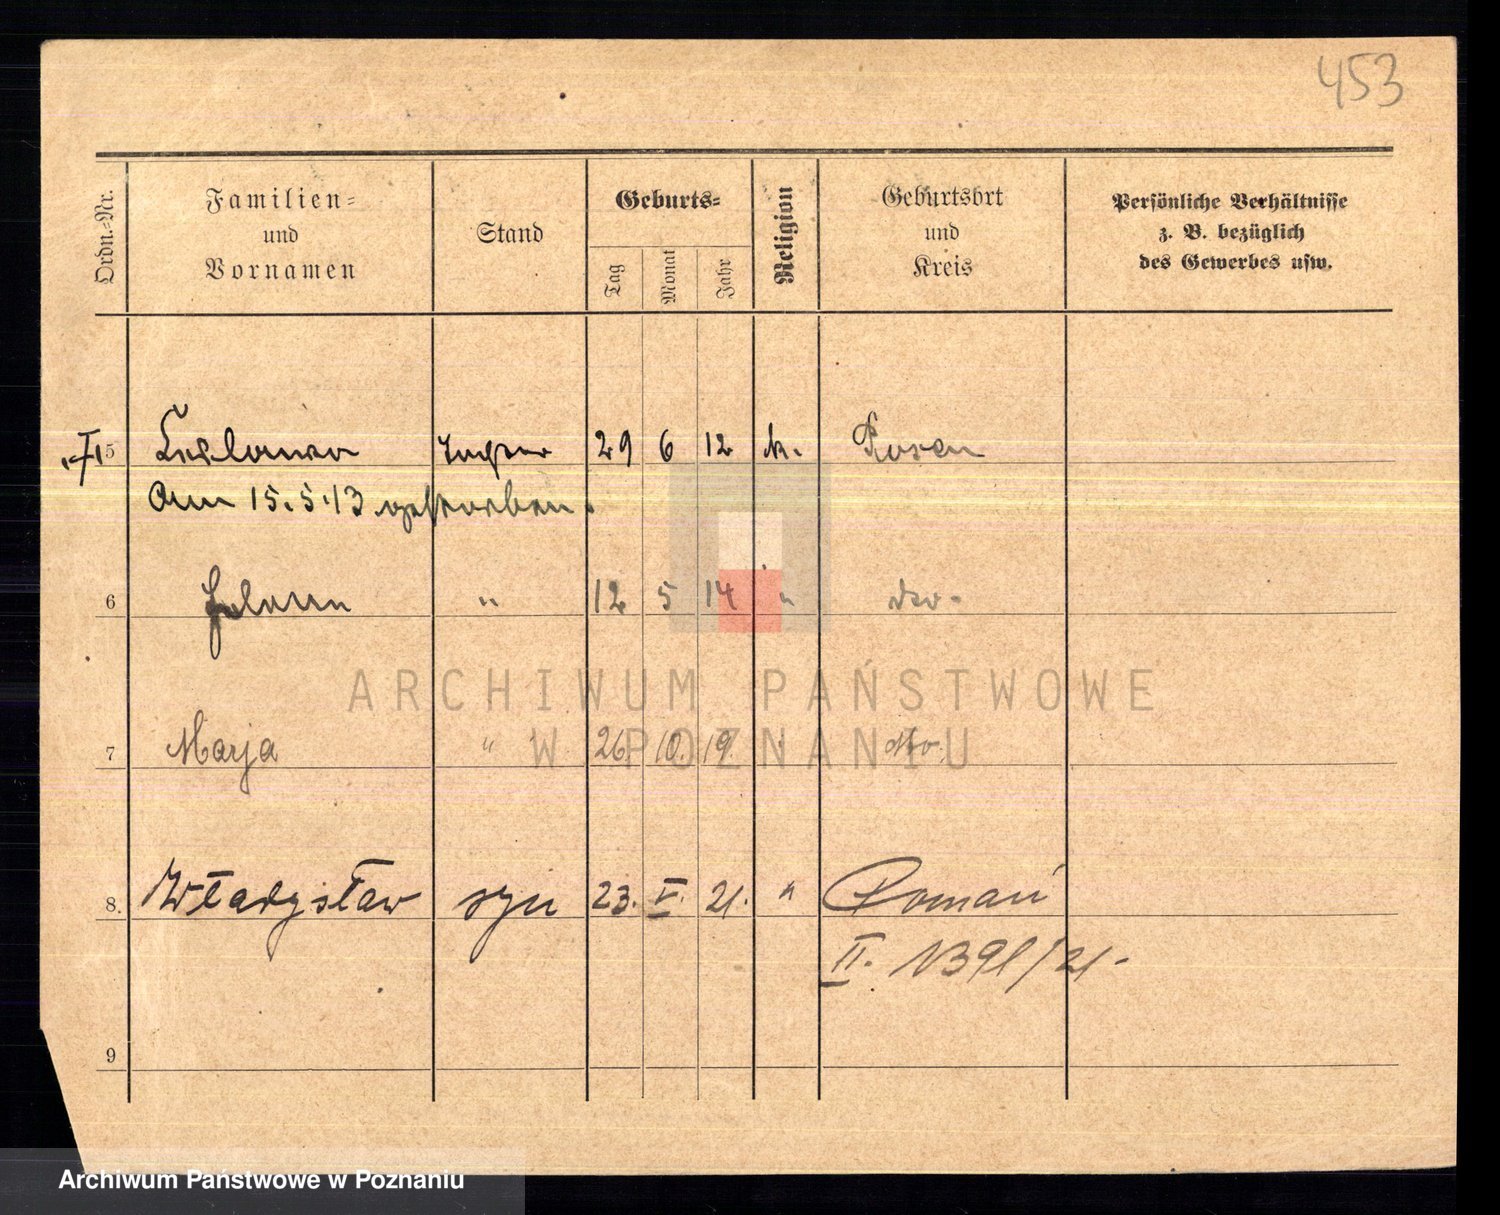 453
Ordn.=Nr.
Familien=
und
Vornamen
Stand
Geburts=
Tag
Monat
Jahr
Religion
Geburtsort
und
Kreis
Persönliche Verhältnisse
z. B. bezüglich
des Gewerbes usw.
5 Tochter 29 6 12 k. Posen
Am 15.5.13 gestorben.
6 " 12 5 14 " dto.
ARCHIWUM PAŃSTWOWE
7 Marja " 26 10. 19. " dto.
W POZNANIU
8. Władysław syn 23. V. 21. "
II. 1391/21-
9
Archiwum Państwowe w Poznaniu